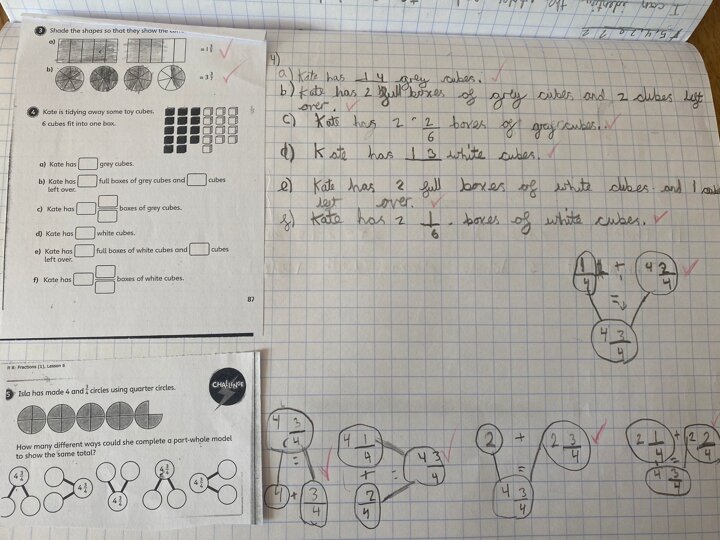 3 Shade the shapes so that they show the
a)
= 1 3/
b)
= 3 2/
4 Kate is tidying away some toy cubes.
6 cubes fit into one box.
a) Kate has grey cubes.
b) Kate has full boxes of grey cubes and cubes
left over.
c) Kate has boxes of grey cubes.
d) Kate has white cubes.
e) Kate has full boxes of white cubes and cubes
left over.
f) Kate has boxes of white cubes.
87
I can identify the
4)
a) Kate has 14 grey cubes.
b) Kate has 2 full boxes of grey cubes and 2 cubes left
over.
c) Kate has 2 2/6 boxes of gray cubes.
d) Kate has 13 white cubes.
e) Kate has 2 full boxes of white cubes and 1 cube
left over.
f) Kate has 2 1/6 boxes of white cubes.
1/4 + 4 2/4
=
4 3/4
8: Fractions (1), Lesson
5 Isla has made 4 and 3/4 circles using quarter circles.
CHALLENGE
How many different ways could she complete a part-whole model
to show the same total?
4 3/4 4 3/4 4 3/4 4 3/4 4 3/4
4 3/4 = 4 + 3/4
4 1/4 + 2/4 = 4 3/4
2 + 2 3/4 = 4 3/4
2 1/4 + 2 2/4 = 4 3/4